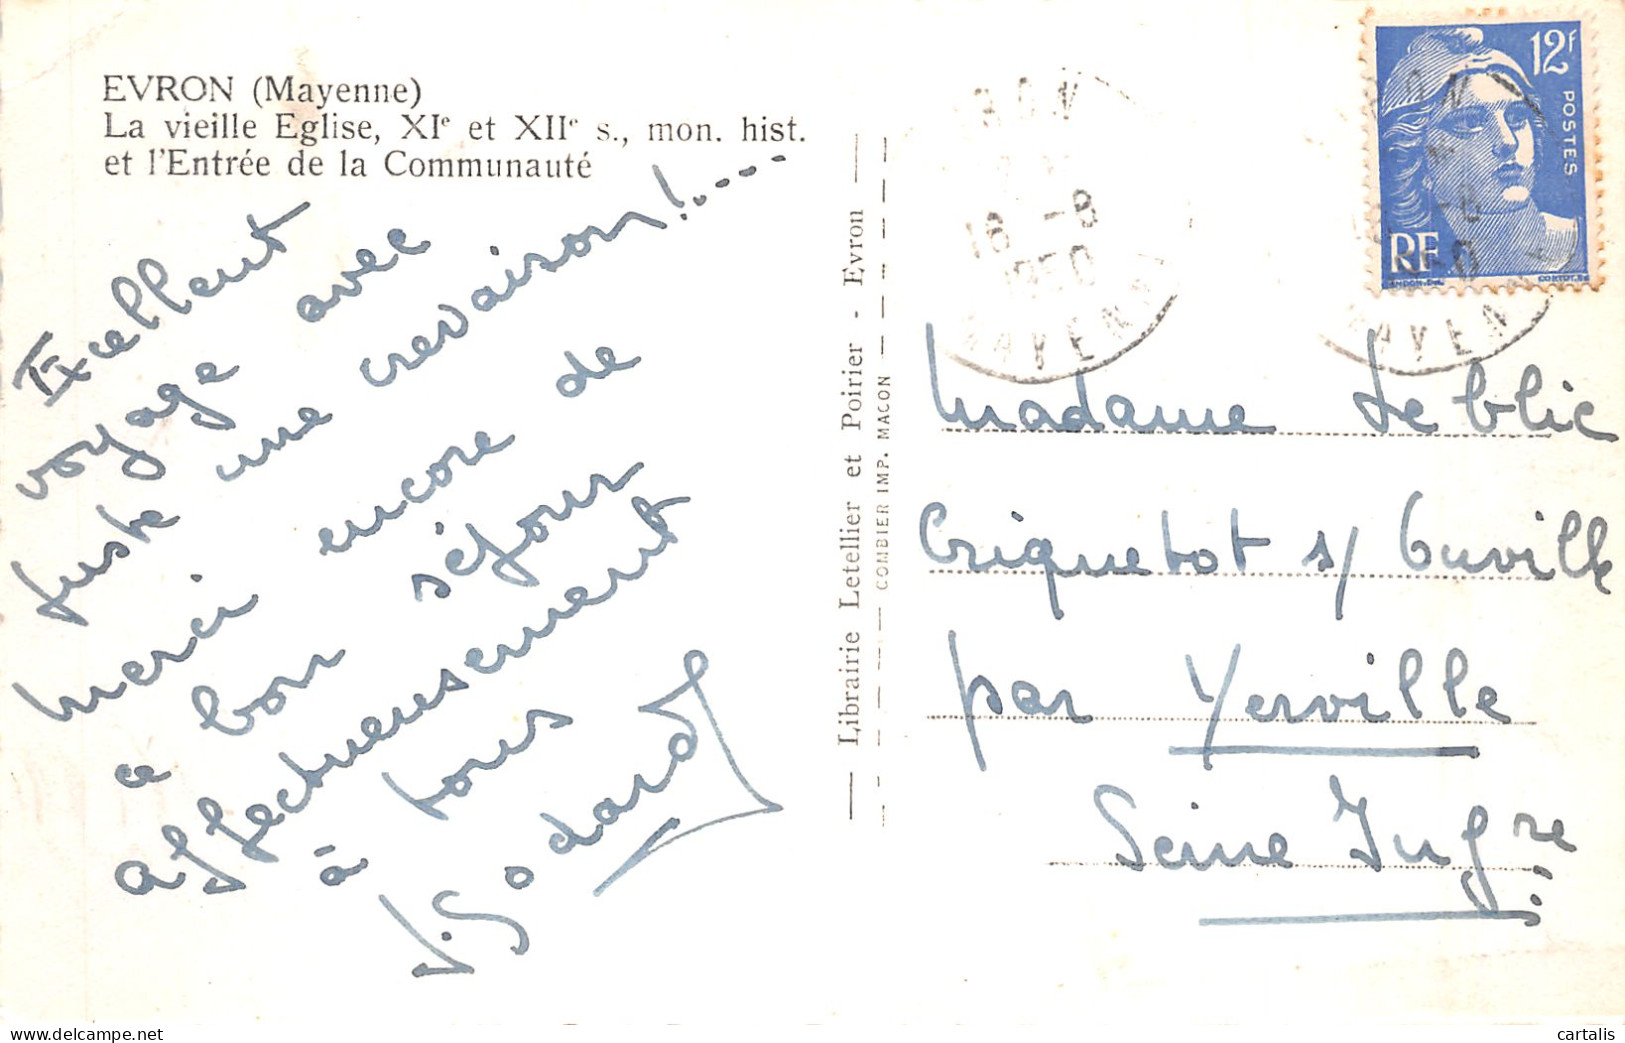 EVRON (Mayenne)
La vieille Eglise, XIe et XIIe s., mon. hist.
et l'Entrée de la Communauté
Excellent
voyage avec
juste une crevaison!....
merci encore de
ce bon séjour
affectueusement
à tous
J. Godard
Librairie Letellier et Poirier - Evron
COMBIER IMP. MACON
16 -8
1950
MAYENNE
12F
POSTES
RF
Madame Le blic
Criquetot s/ Ouville
par Yerville
Seine Infre
cartalis
delcampe.net